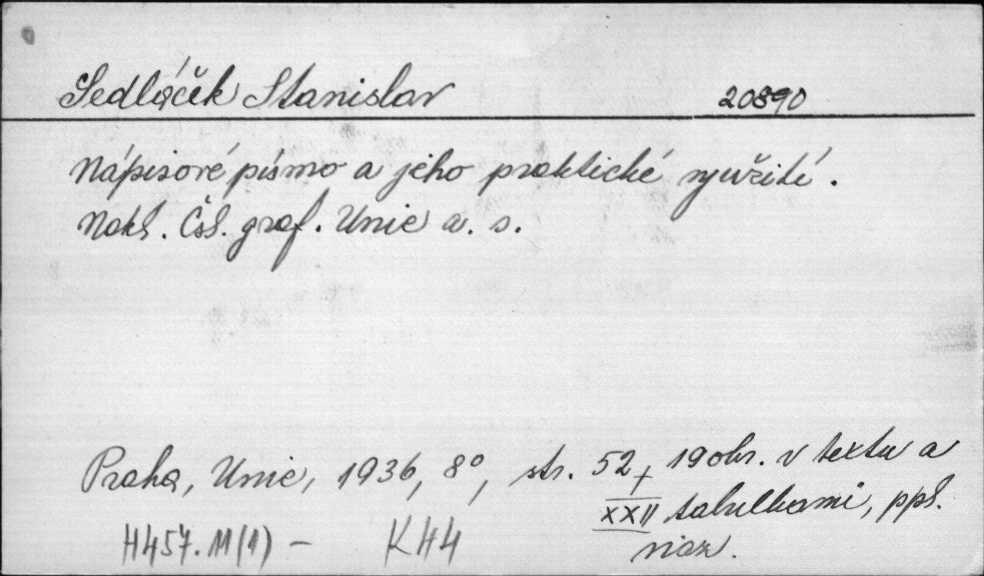 Sedláček Stanislav 20890
Nápisové písmo a jeho praktické využití.
Nakl. Čsl. graf. Unie a. s.
Praha, Unie, 1936, 8°, str. 52 + 19 obr. v textu a
XXII tabulkami, ppl.
viaz.
H457.M(1) – K H4